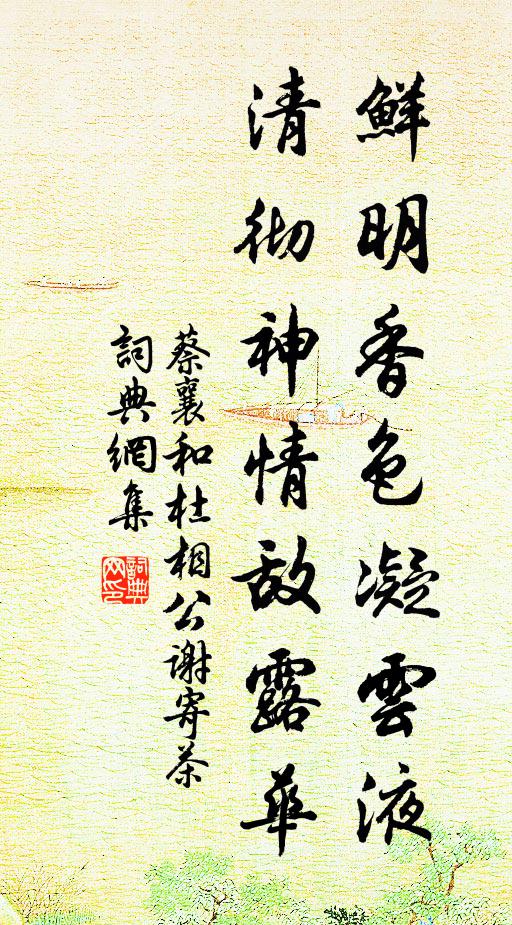 鮮明香色凝雲液
清彻神情敌露華
蔡襄和杜相公謝寄茶
詞典網集
詞典网印